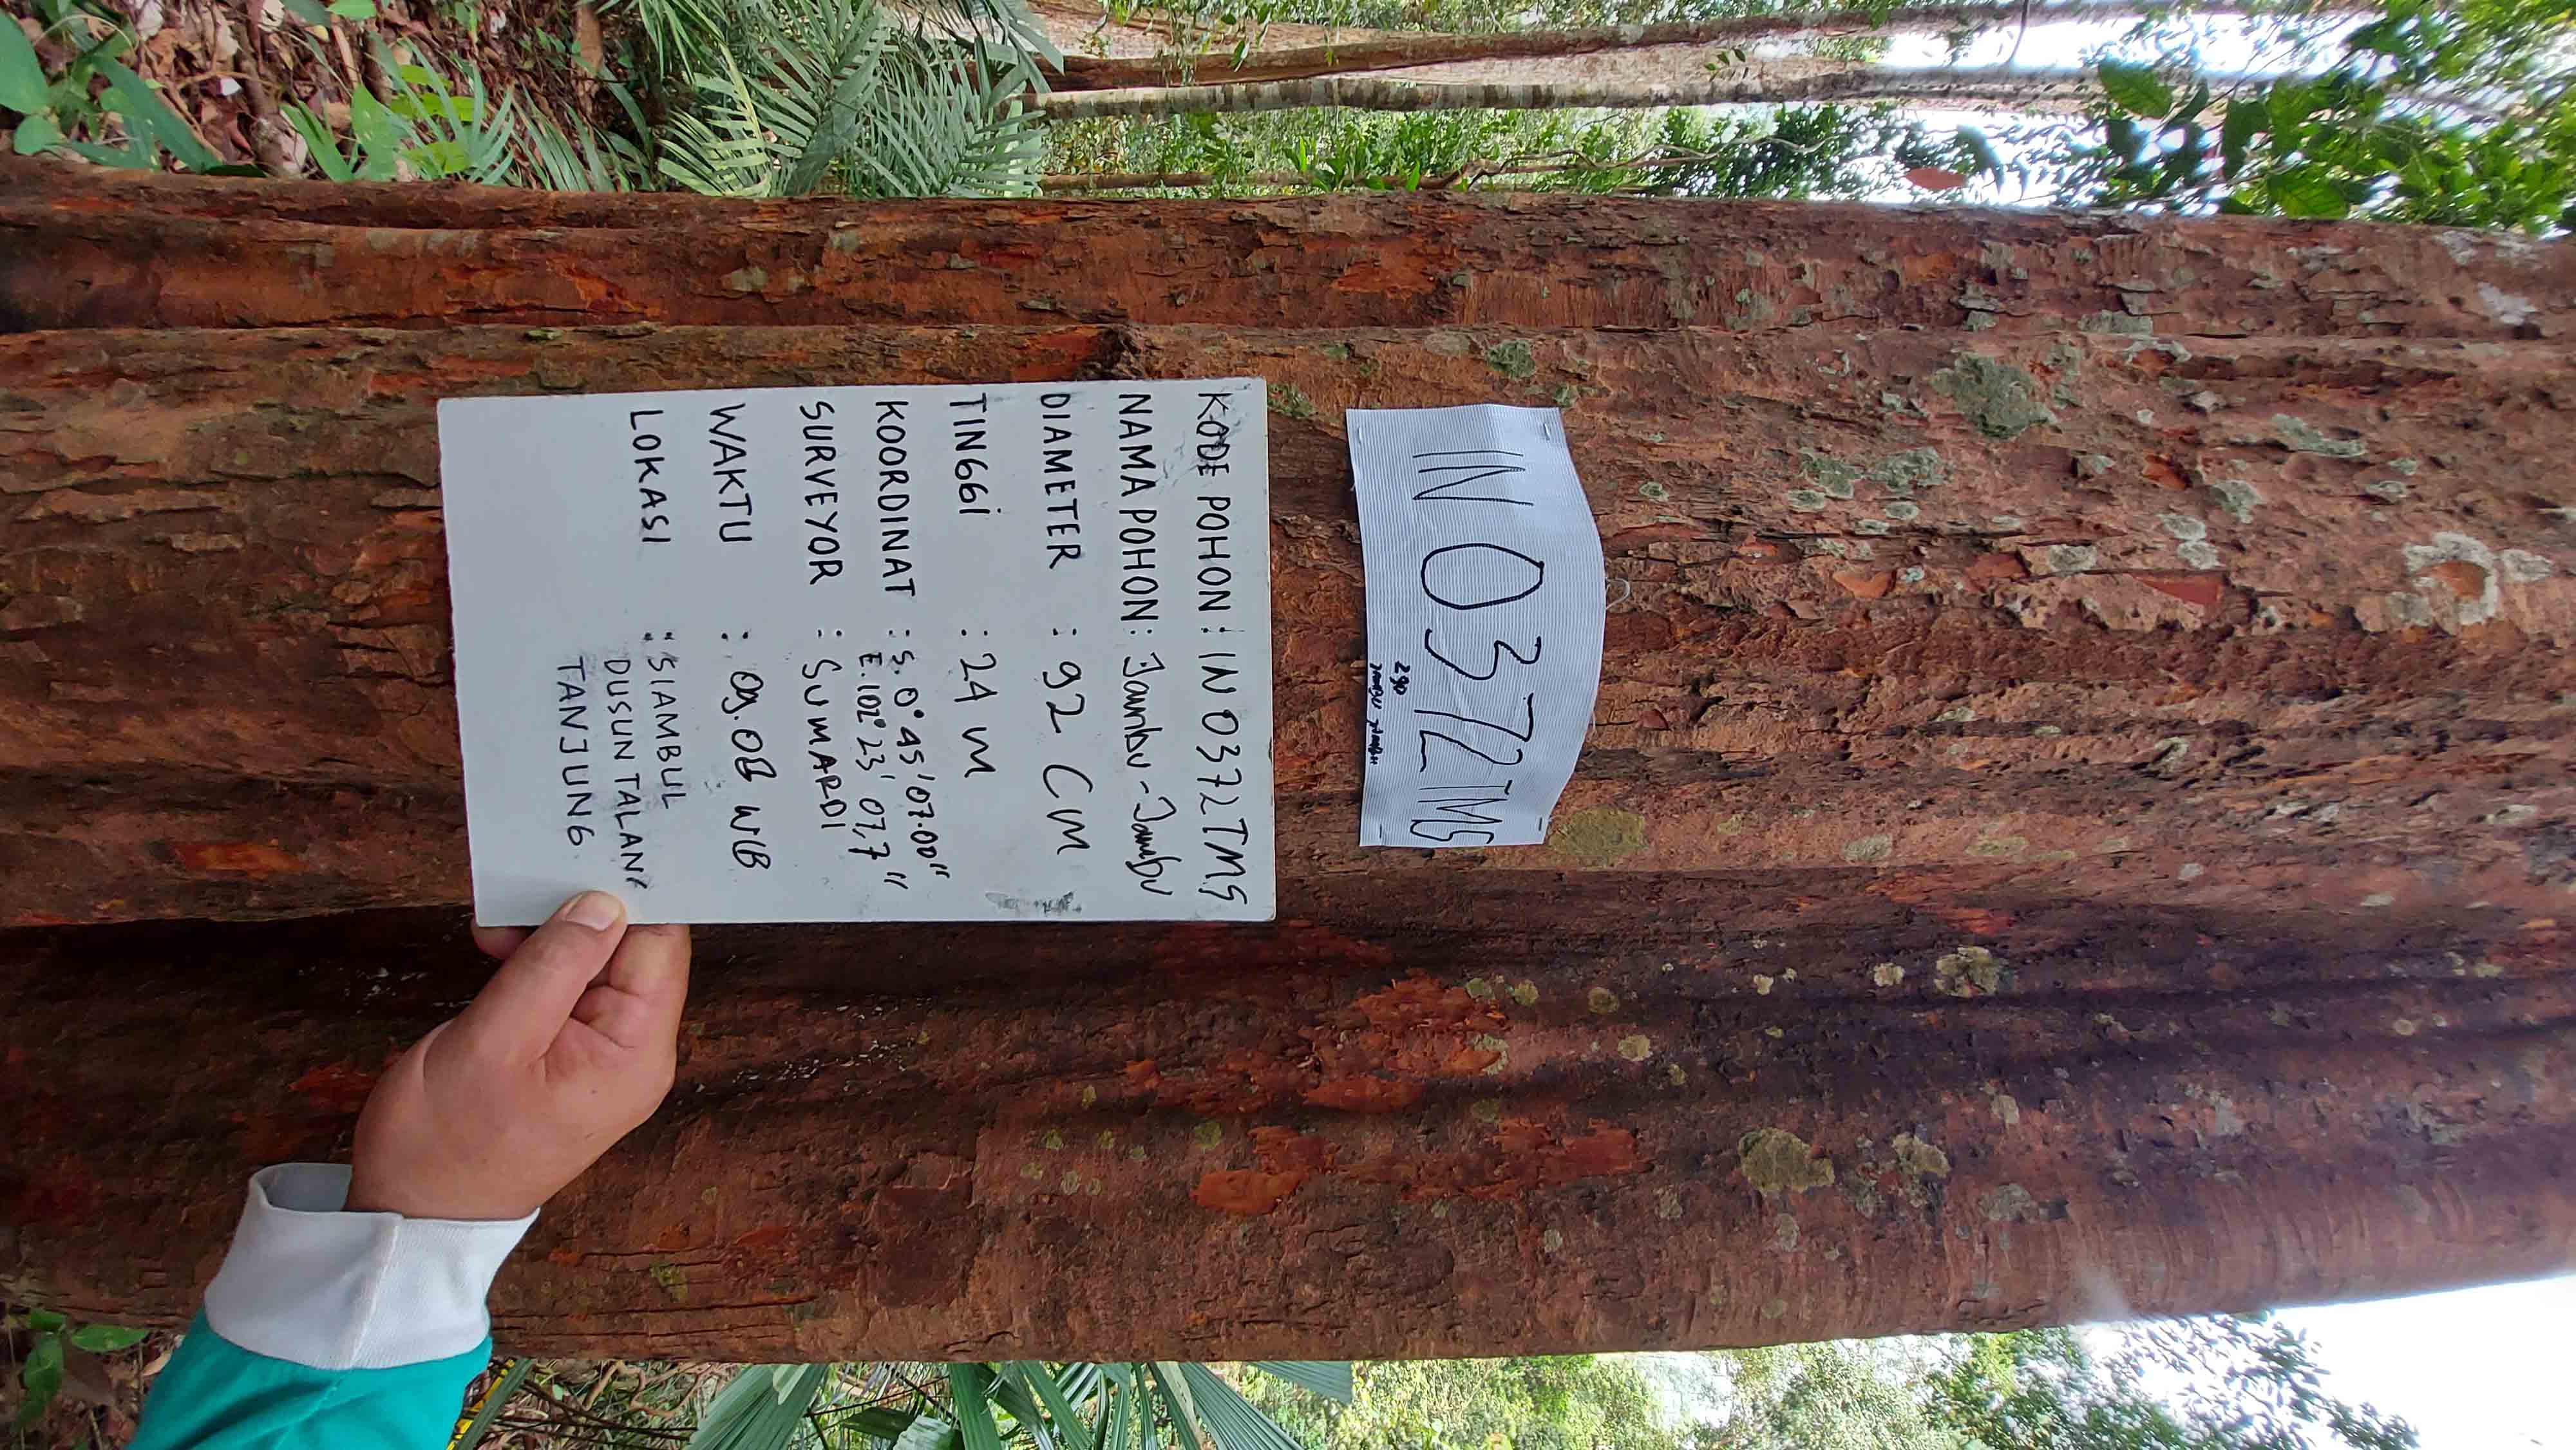 IN 0372 TMS
290
JAMBU JAMBU
KODE POHON : IN 0372 TMS
NAMA POHON : Jambu - Jambu
DIAMETER : 92 CM
TINGGi : 24 m
KOORDINAT : S. 0° 45' 07.00"
E. 102° 23' 07,7"
SURVEYOR : SUMARDI
WAKTU : 09.08 WIB
LOKASI : SIAMBUL
DUSUN TALANG
TANJUNG